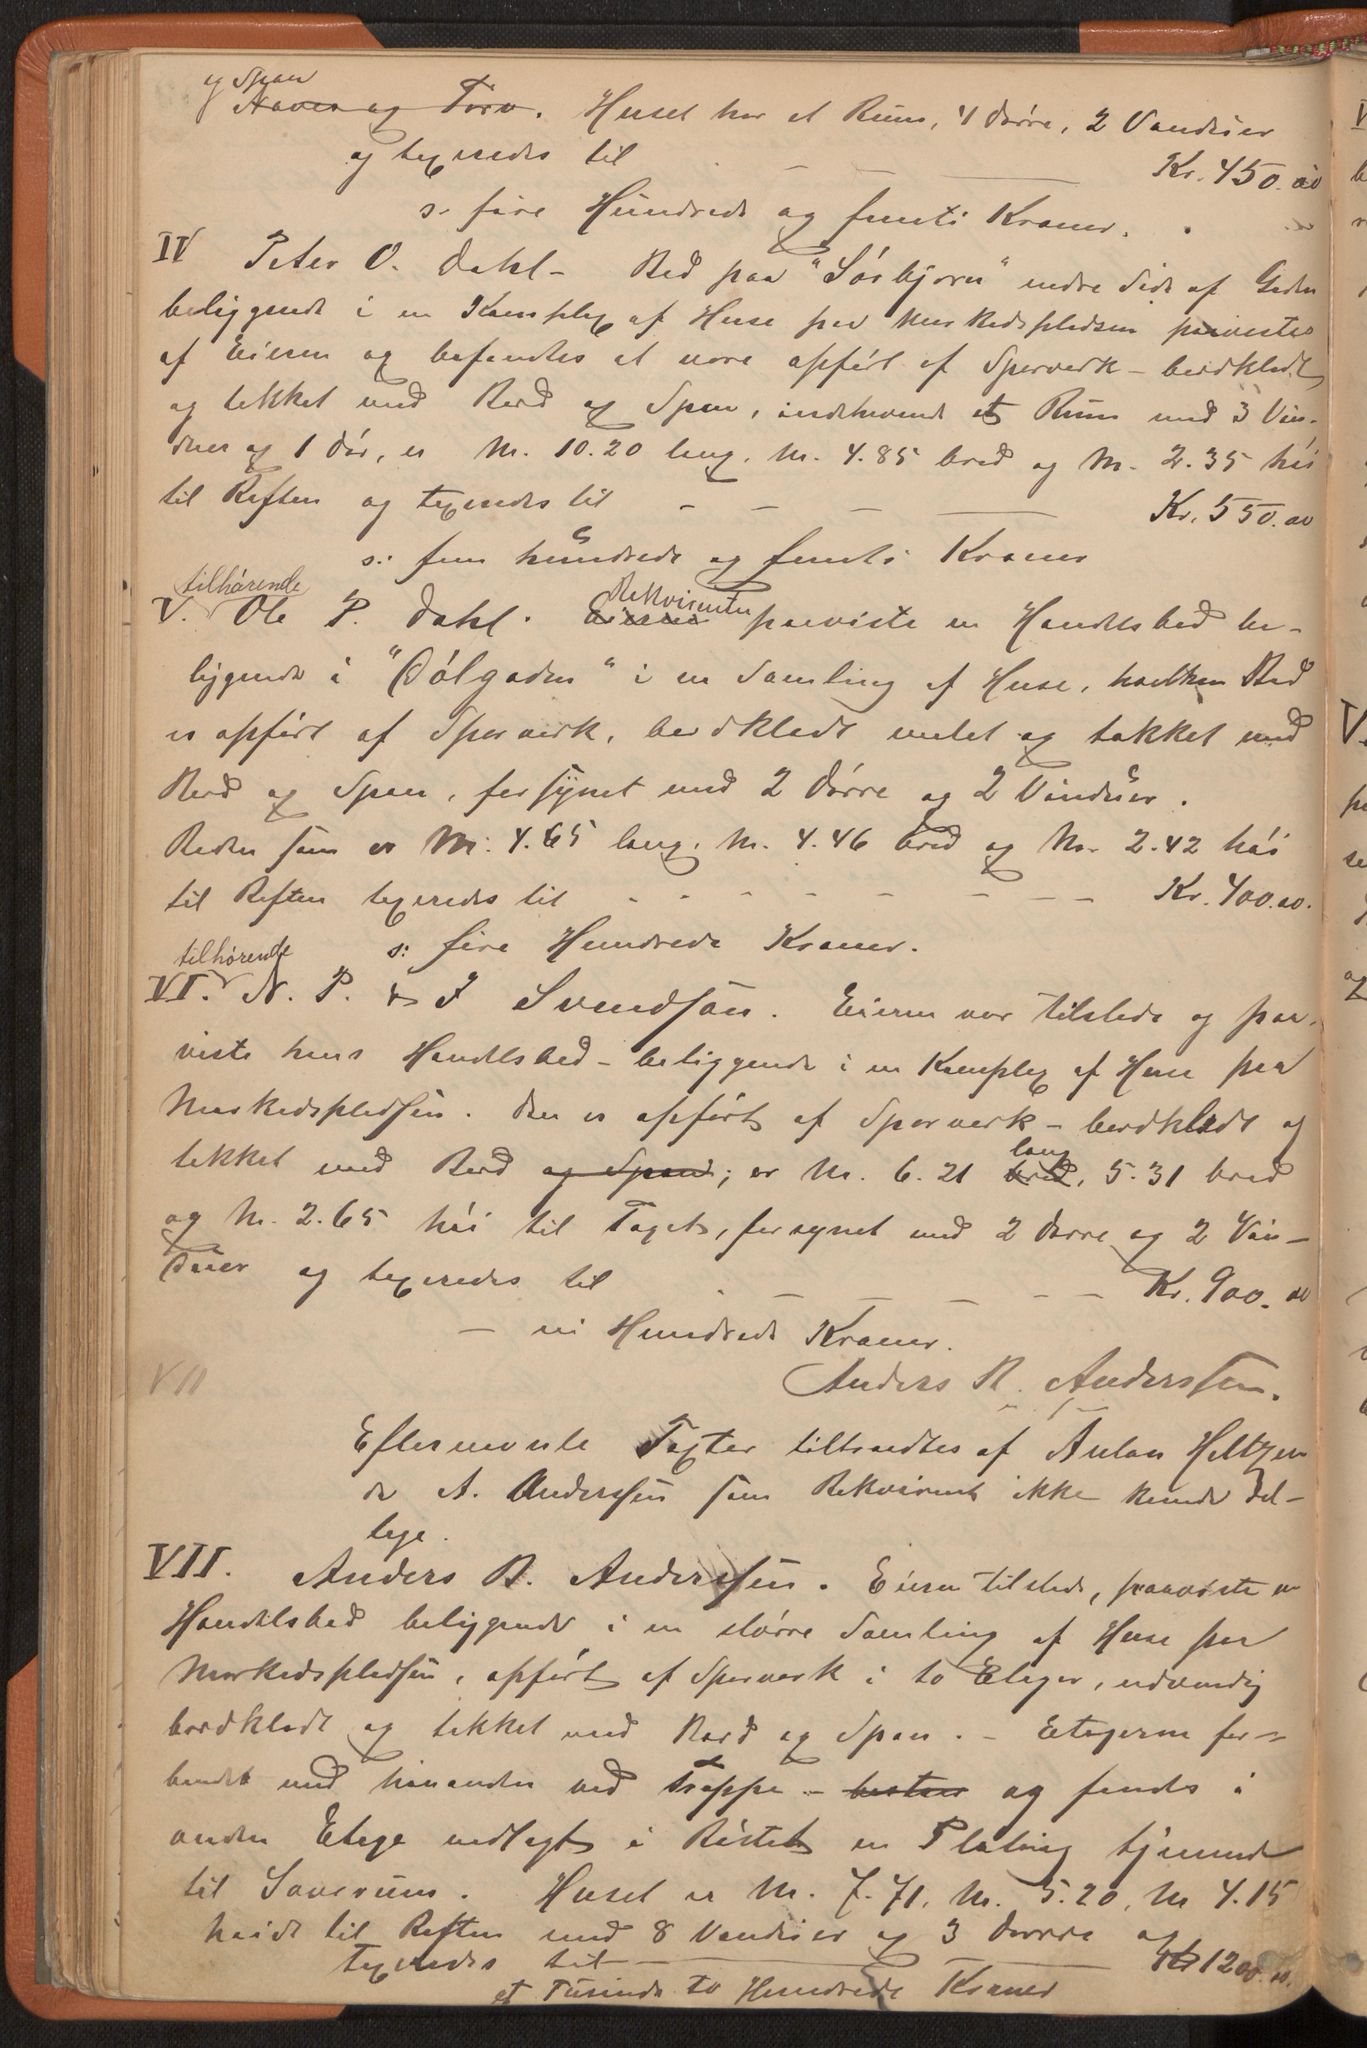 og Spaan
Naver og Torv. Huset har et Rum, 4 Dørre, 2 Vinduer
og taxeredes til - - Kr. 450.00
s. fire Hundrede og femti Kroner.
IV Peter O. Dahl - Bod paa "Sørbjørn" nedre Side af Gaden
beliggende i en Komplex af Huse paa Markedspladsen paavistes
af Eieren og befandtes at være opført af Sperverk - bordklædt
og tækket med Bord og Spon, indehavende et Rum med 3 Vin-
duer og 1 Dør, er M. 10.20 lang, M. 4.85 bred og M. 2.35 høi
til Røften og taxeredes til - - - Kr. 550.00
s: fem hundrede og femti Kroner
tilhørende Rekvirenten
V. Ole P. Dahl. Eieren paaviste en Handelsbod be-
liggende i "Dølgaden" i en Samling af Huse, hvilken Bod
er opført af Sperverk, bordklædt malet og takket med
Bord og Spon, forsynet med 2 Dørre og 2 Vinduer.
Boden som er M. 4.65 lang, M. 4.46 bred og M. 2.42 høi
til Røften taxeredes til - - - - - - - - Kr. 400.00.
s: fire Hundrede Kroner.
tilhørende
VI. N. P. & J Svendsen. Eieren var tilstede og paa-
viste hans Handelsbod - beliggende i en Komplex af Huse paa
Markedspladsen. Den er opført af Sperverk - bordklædt og
tækket med Bord og Spon; er M. 6.21 bred lang, 5.31 bred
og M. 2.65 høi til Taget, forsynet med 2 Dørre og 2 Vin-
duer og taxeredes til - - - - - - Kr. 900.00
- ni Hundrede Kroner.
VII Anders B. Anderssen.
Efternævnte Taxter tiltraadtes af Anton Heltzen
da A. Anderssen som Rekvirent ikke kunde del-
tage.
VII. Anders B. Anderssen. Eieren tilstede, paaviste en
Handelsbod beliggende i en større Samling af Huse paa
Markedspladsen, opført af Sperverk i to Etager, udvendig
bordklædt og tækket med Bord og Spon. - Etagerne for-
bundet med hinanden ved Trappe - bestaar og fandtes i
anden Etage nedlagt i Røstet en Platning tjenende
til Soverum. Huset er M. 7.71, M. 5.20, M 4.15
høide til Røften med 8 Vinduer og 3 Dørre og
taxeredes til - Kr 1200.00.
et Tusinde to Hundrede Kroner